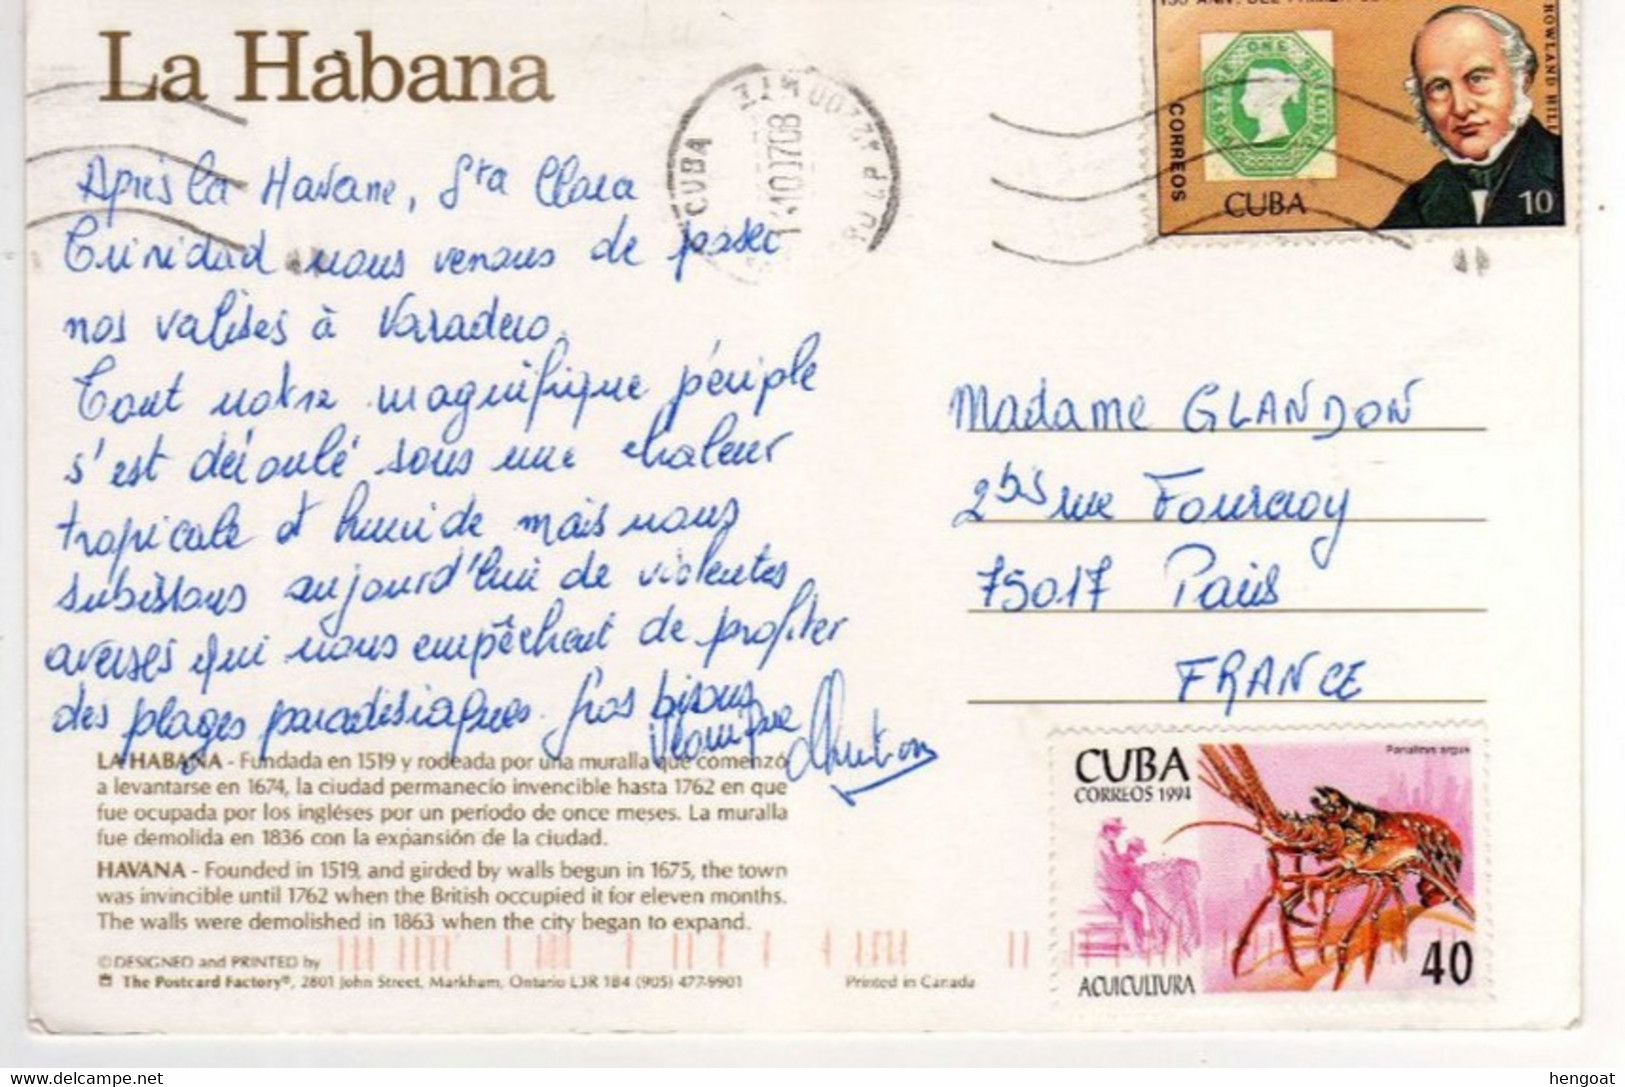 La Habana
Après la Havane, Sta Clara
Trinidad nous venons de poser
nos valises à Varadero.
Tout notre magnifique périple
s'est déroulé sous une chaleur
tropicale et humide mais nous
subissons aujourd'hui de violentes
averses qui nous empêchent de profiter
des plages paradisiaques. Gros bisous
CUBA
ROWLAND HILL
POSTAGE
ONE
SHILLING
CORREOS
CUBA
10
Madame GLANDON
2bis rue Fourcroy
75017 Paris
FRANCE
LA HABANA - Fundada en 1519 y rodeada por una muralla que comenzó
a levantarse en 1674, la ciudad permanecío invencible hasta 1762 en que
fue ocupada por los ingléses por un período de once meses. La muralla
fue demolida en 1836 con la expansión de la ciudad.
HAVANA - Founded in 1519, and girded by walls begun in 1675, the town
was invincible until 1762 when the British occupied it for eleven months.
The walls were demolished in 1863 when the city began to expand.
© DESIGNED and PRINTED by
The Postcard Factory®, 2801 John Street, Markham, Ontario L3R 1B4 (905) 477-9901
Printed in Canada
CUBA
CORREOS 1994
Panulirus argus
ACUICULTURA
40
delcampe.net
hengoat